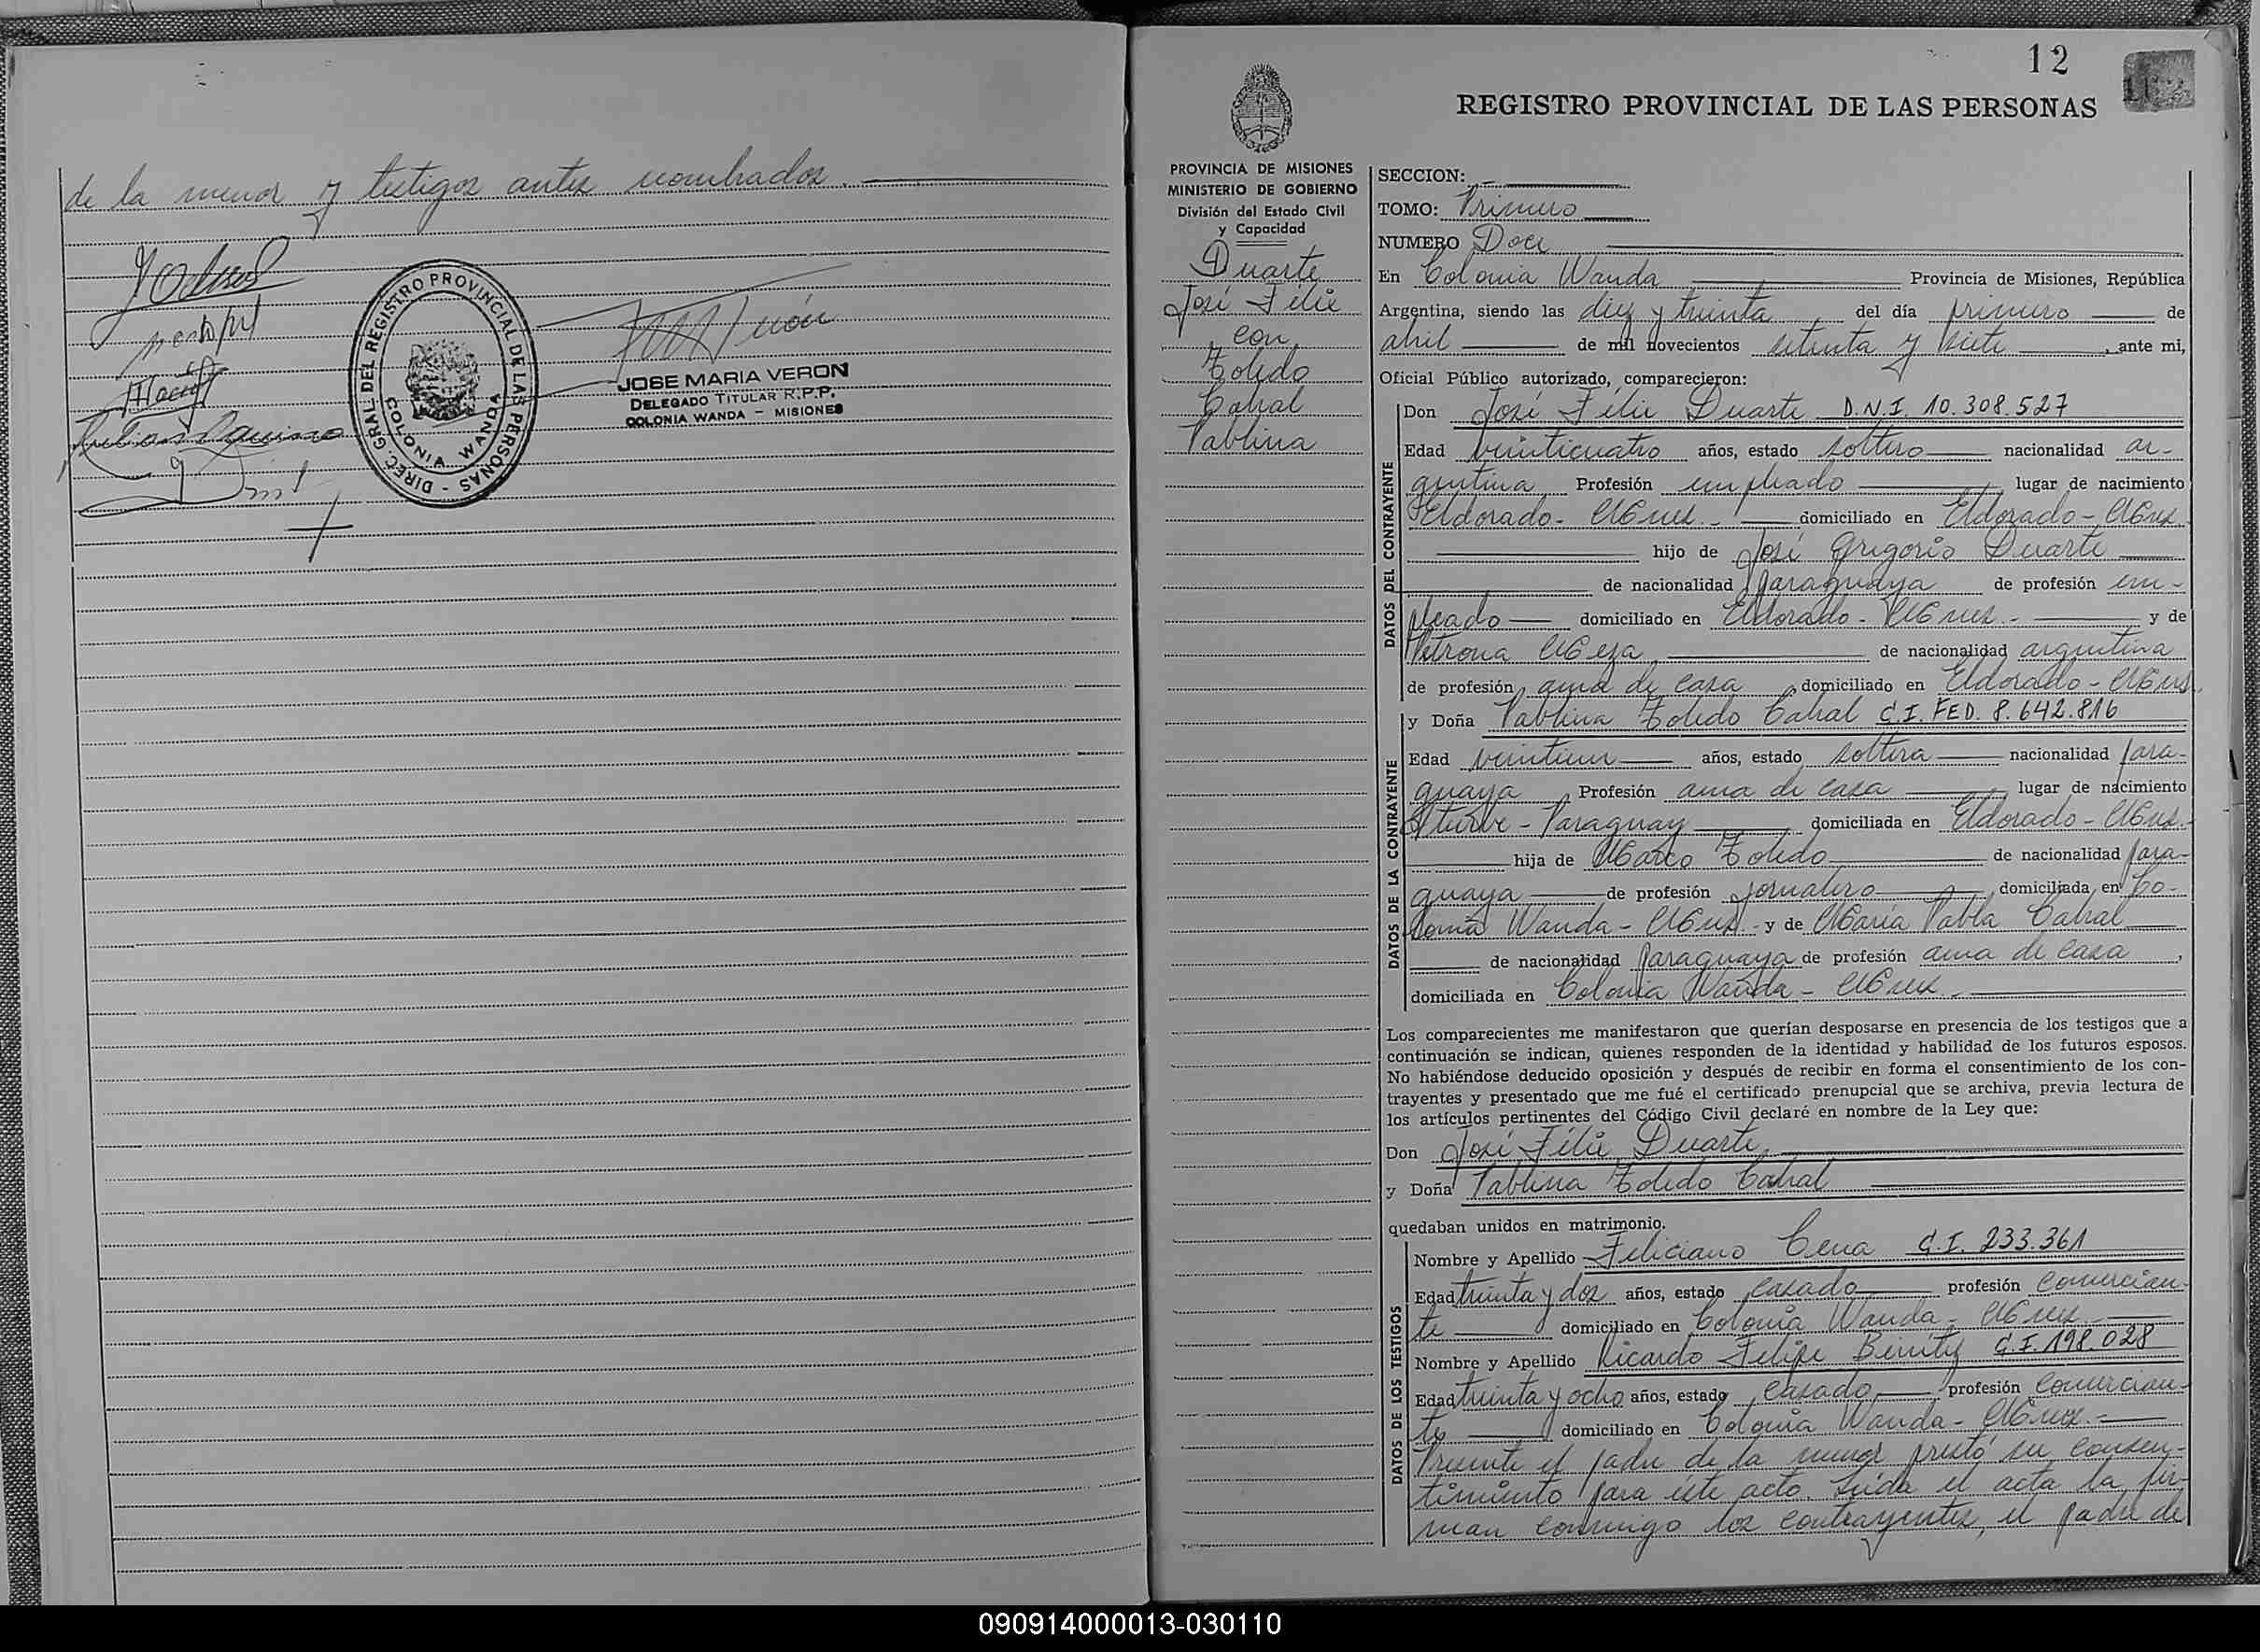 de la menor y testigos antes nombrados.
Ruben Aquino
DIREC. GRAL. DEL REGISTRO PROVINCIAL DE LAS PERSONAS -
COLONIA WANDA
JOSE MARIA VERON
DELEGADO TITULAR R.P.P.
COLONIA WANDA - MISIONES
12
REGISTRO PROVINCIAL DE LAS PERSONAS
PROVINCIA DE MISIONES
MINISTERIO DE GOBIERNO
División del Estado Civil
y Capacidad
Duarte
José Félix
con
Toledo
Cabral
Pablina
SECCION:
TOMO: Primero
NUMERO Doce
En Colonia Wanda Provincia de Misiones, República
Argentina, siendo las diez y treinta del día primero de
abril de mil novecientos setenta y siete, ante mi,
Oficial Público autorizado, comparecieron:
DATOS DEL CONTRAYENTE
Don José Félix Duarte D.N.I. 10.308.527
Edad veinticuatro años, estado soltero nacionalidad ar-
gentina Profesión empleado lugar de nacimiento
Eldorado - Mnes. domiciliado en Eldorado - Mnes.
hijo de José Gregorio Duarte
de nacionalidad paraguaya de profesión em-
pleado domiciliado en Eldorado - Mnes. - y de
Petrona Meza de nacionalidad argentina
de profesión ama de casa, domiciliado en Eldorado - Mnes.
DATOS DE LA CONTRAYENTE
y Doña Pablina Toledo Cabral C.I. FED. 8.642.816
Edad veintiun años, estado soltera nacionalidad para-
guaya Profesión ama de casa lugar de nacimiento
Iturbe - Paraguay domiciliada en Eldorado - Mnes.
hija de Marco Toledo de nacionalidad para-
guaya de profesión jornalero domiciliada en Co-
lonia Wanda - Mnes. - y de María Pabla Cabral
de nacionalidad paraguaya de profesión ama de casa,
domiciliada en Colonia Wanda - Mnes.
Los comparecientes me manifestaron que querían desposarse en presencia de los testigos que a
continuación se indican, quienes responden de la identidad y habilidad de los futuros esposos.
No habiéndose deducido oposición y después de recibir en forma el consentimiento de los con-
trayentes y presentado que me fué el certificado prenupcial que se archiva, previa lectura de
los artículos pertinentes del Código Civil declaré en nombre de la Ley que:
Don José Félix Duarte
y Doña Pablina Toledo Cabral
quedaban unidos en matrimonio.
DATOS DE LOS TESTIGOS
Nombre y Apellido Feliciano Cena C.I. 233.361
Edad treinta y dos años, estado casado profesión comercian-
te domiciliado en Colonia Wanda - Mnes.
Nombre y Apellido Ricardo Felipe Benitez C.I. 198.028
Edad treinta y ocho años, estado casado profesión comercian-
te domiciliado en Colonia Wanda - Mnes. -
Presente el padre de la menor prestó su consen-
timiento para éste acto. Leída el acta la fir-
man conmigo los contrayentes, el padre de
090914000013-030110